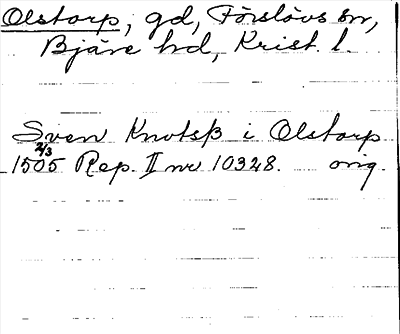 Olstorp, gd, Förslövs sn,
Bjäre hd, Krist. l.
Sven Knutsß i Olstorp
2/3
1505 Rep. II nr 10328. orig.